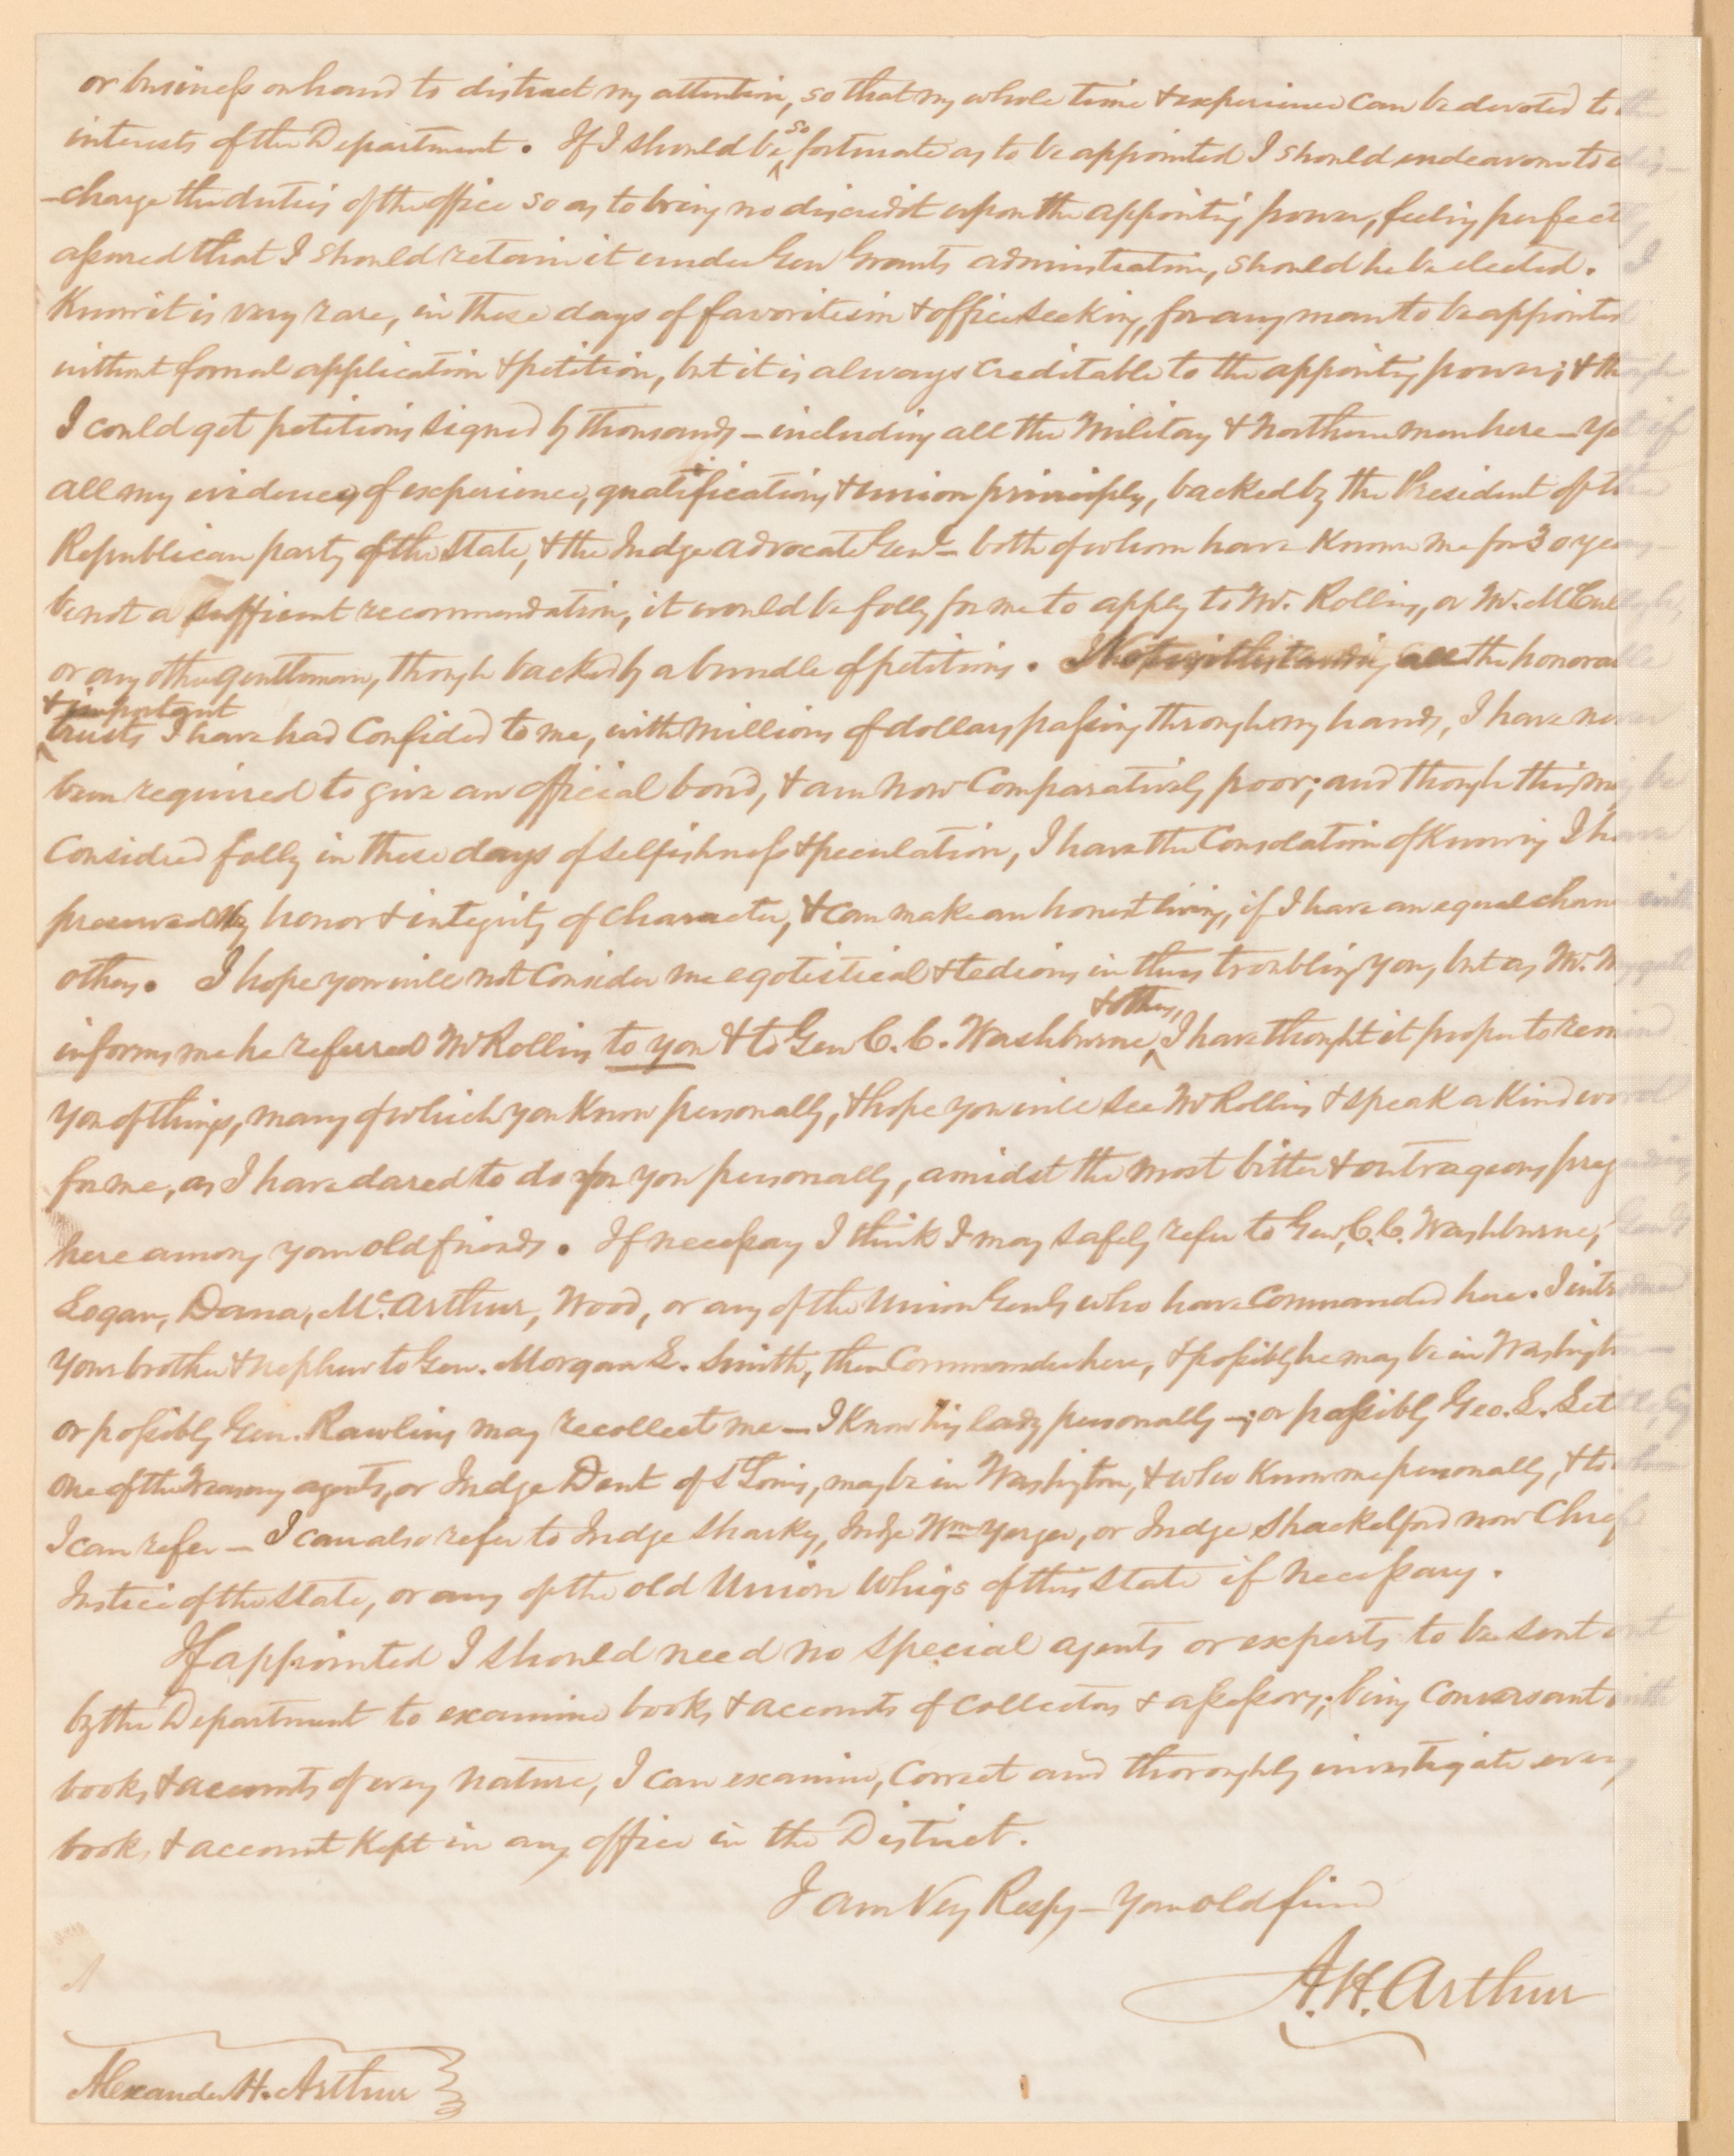 or business on hand to distract my attention, so that my whole time & experience can be devoted to the
interests of the Department. If I should be so fortunate as to be appointed I should endeavour to dis-
-charge the duties of the office so as to bring no discredit upon the appointing power, feeling perfectly
assured that I should retain it under Gen Grants administration, should he be elected. I
Know it is very rare, in these days of favoritism & office seeking, for any man to be appointed
without formal application & petition, but it is always creditable to the appointing power; & though
I could get petitions signed by thousands – including all the Military & Northern men here – yet if
all my evidences of experience, qualifications & union principles, backed by the President of the
Republican party of the State, & the Judge Advocate Genl – both of whom have Known me for 30 years –
be not a sufficient recommendation, it would be folly for me to apply to Mr. Rollins, or Mr. McCulloch,
or any other gentleman, though backed by a bundle of petitions. Notwithstanding all the honorable
& important
trusts I have had Confided to me, with millions of dollars passing through my hands, I have never
been required to give an official bond, & am now Comparatively poor; and though this may be
Considered folly in these days of selfishness & peculation, I have the Consolation of Knowing I have
preserved my honor & integrity of Character, & can make an honest living, if I have an equal chance with
others. I hope you will not Consider me egotistical & tedious in thus troubling you, but as Mr.
informs me he referred Mr Rollins to you & to Gen C. C. Washburne & others, I have thought it proper to remind
you of things, many of which you Know personally, & hope you will see Mr Rollins & speak a Kind word
for me, as I have dared to do for you personally, amidst the most bitter & outrageous prejudices,
here among your old friends. If necessary I think I may safely refer to Gen, C. C. Washburne,
Logan, Dana, McArthur, Wood, or any of the Union Genls who have Commanded here. I introduced
your brother & nephew to Gen. Morgan L. Smith, then Commander here, & possibly he may be in Washington –
or possibly Gen. Rawlins may recollect me – I Know his lady personally –; or possibly Geo. S.
one of the Treasury agents, or Judge Dent of St Louis, may be in Washington, & who Know me personally, & to whom
I can refer – I can also refer to Judge Sharkey, Judge Wm Yerger, or Judge Shackelford now Chief
Justice of the State, or any of the old Union Whigs of this State if necessary.
If appointed I should need no special agents or experts to be sent out
by the Department to examine books & accounts of Collectors & assessors; being Conversant with
books & accounts of every nature, I can examine, Correct and thoroughly investigate every
book, & account Kept in any office in the District.
I am Very Respy – Your old friend
A. H. Arthur
Alexander H. Arthur